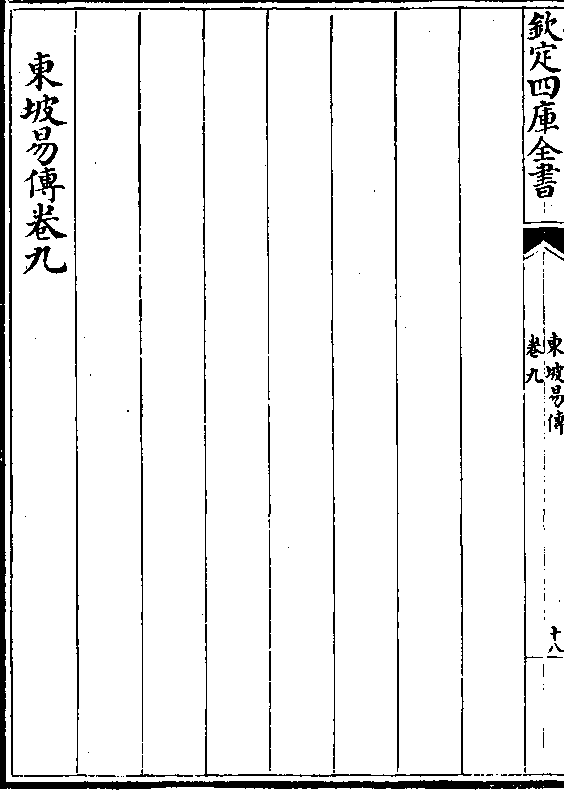 欽定四庫全書
東坡易傳
卷九
十八
東坡易傳卷九